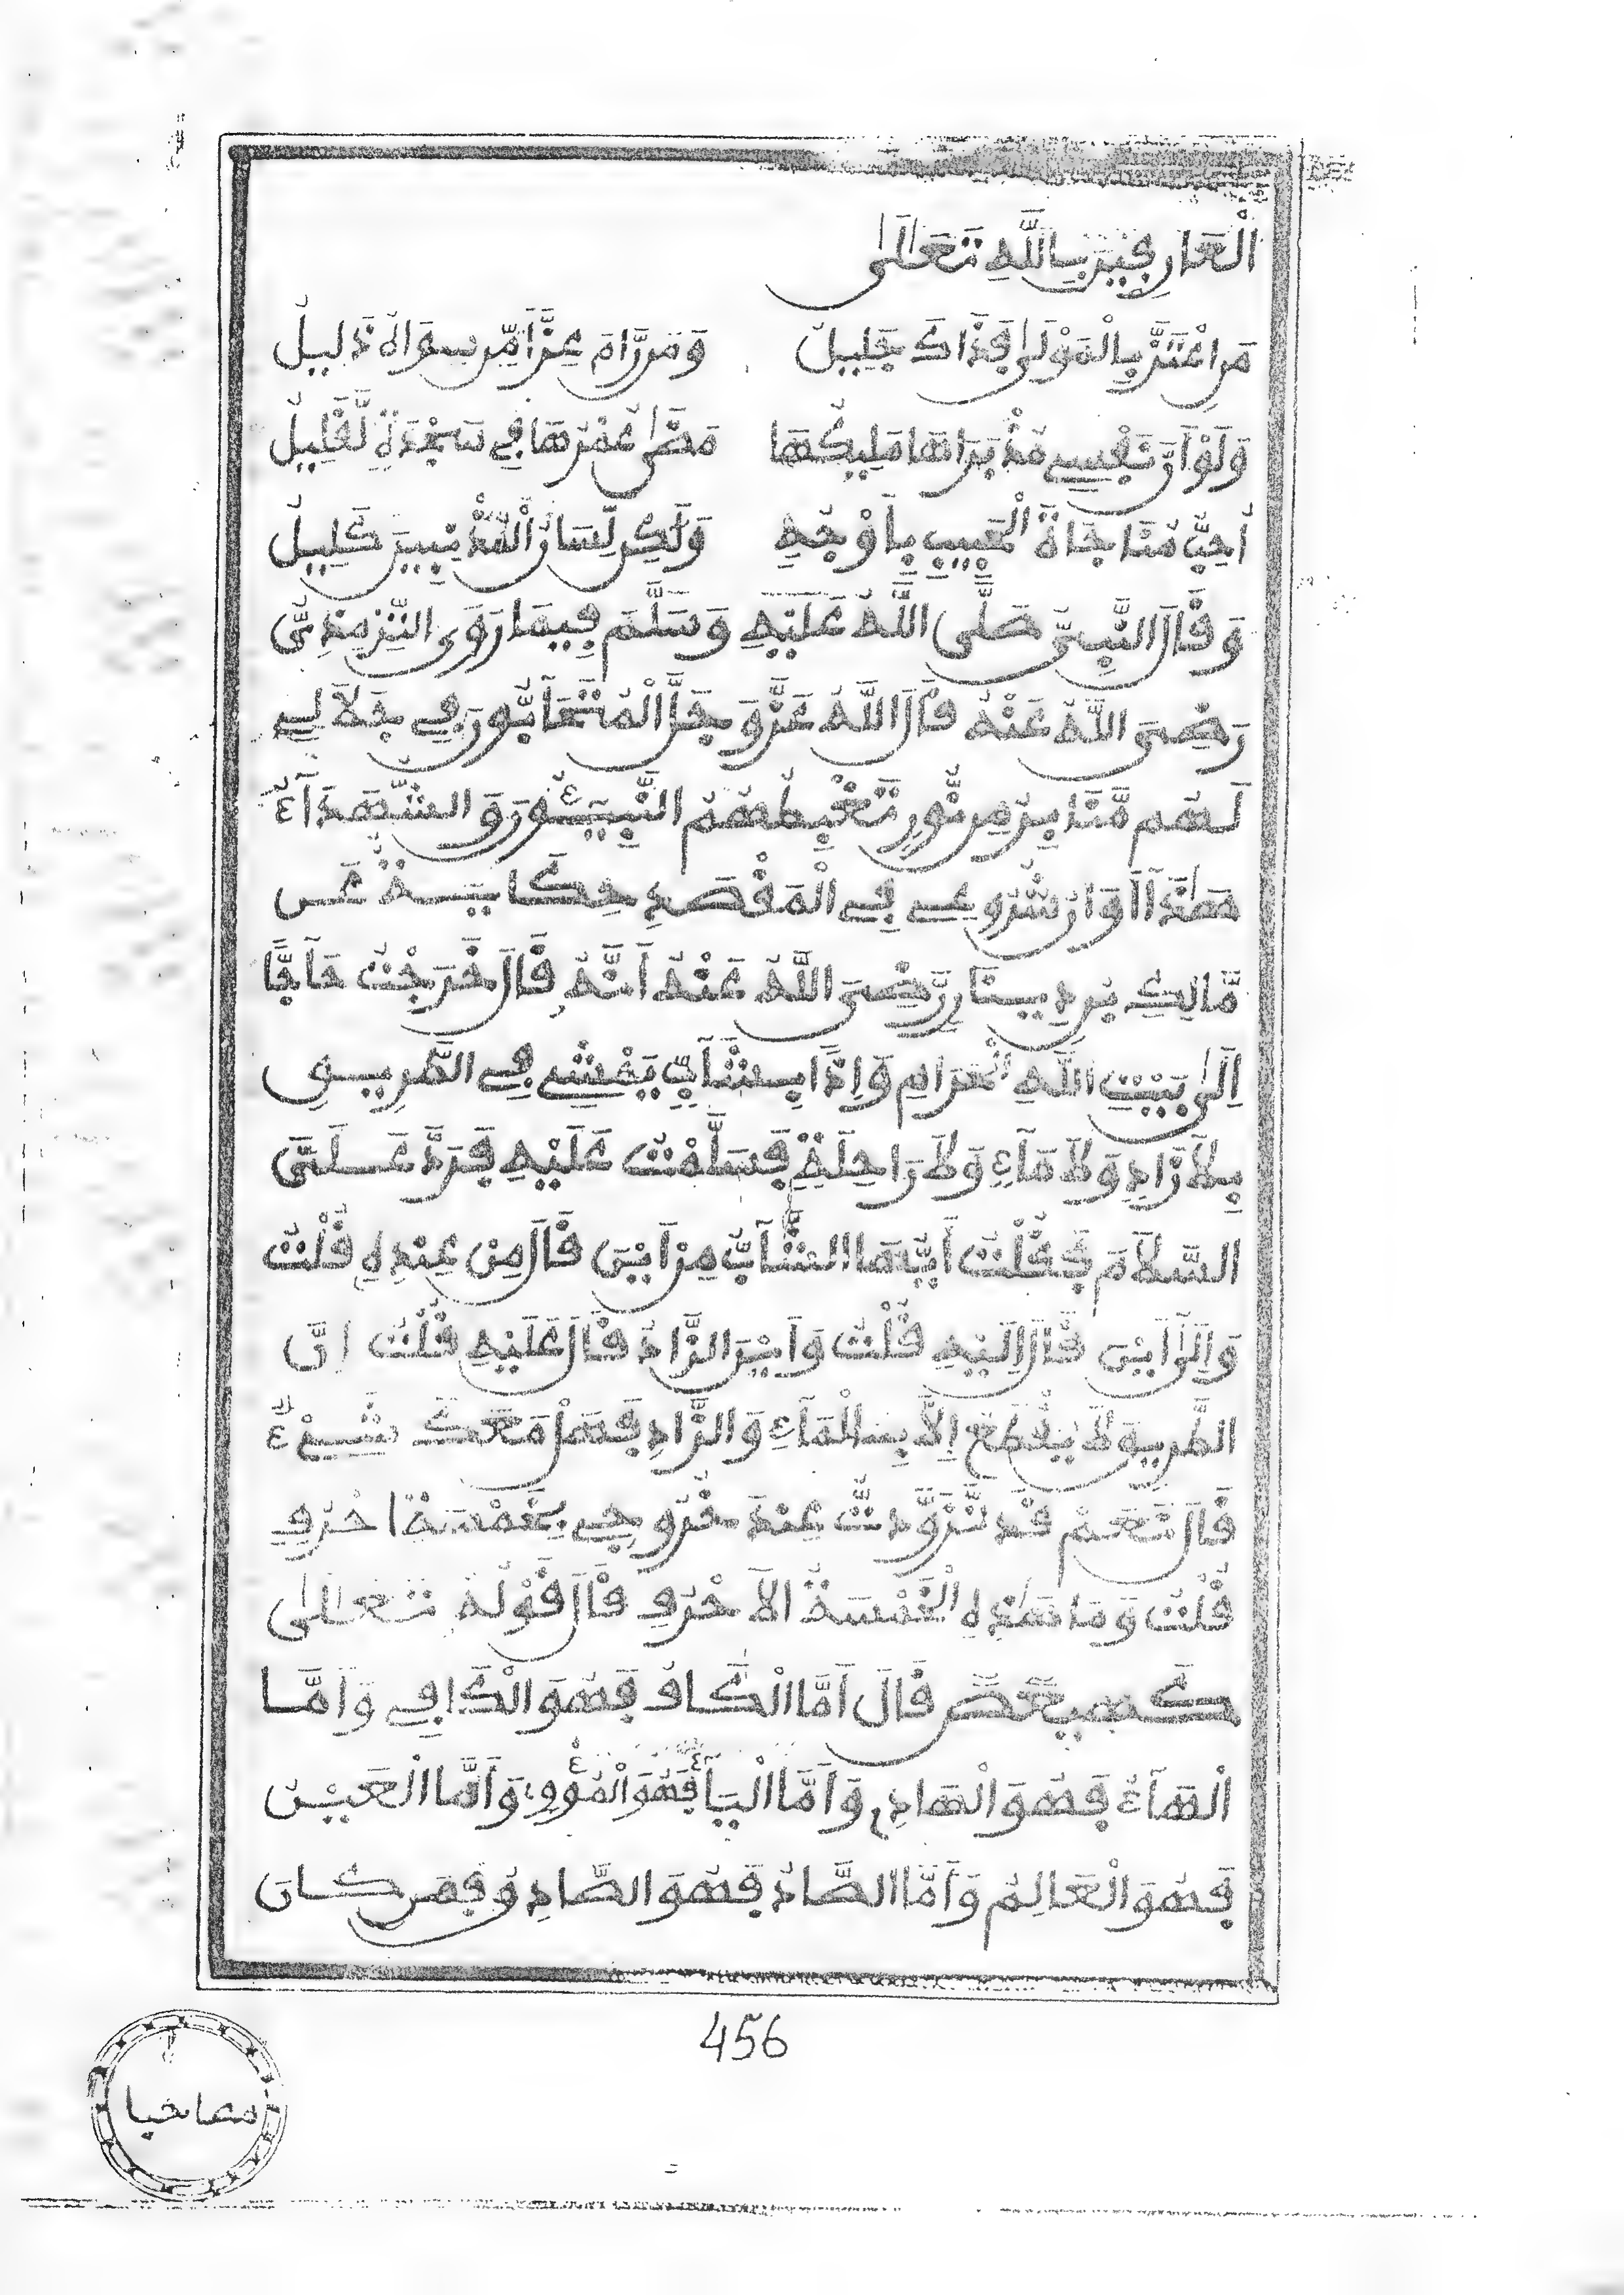 الْعَارِفِينَ بِاللَّهِ تَعَالَى
مَنِ اعْتَزَّ بِالْمَوْلَى فَذَاكَ جَلِيلُ وَمَن رَّامَ عِزًّا مِّن سِوَاهُ ذَلِيلُ
وَلَوْ أَنَّ نَفْسِي مُذْ بَرَاهَا مَلِيكُهَا مَضَى عُمْرُهَا فِي سَجْدَةٍ لَّقَلِيلُ
أُحِبُّ مُنَاجَاةَ الْحَبِيبِ بِأَوْجُهٍ وَلَكِن لِّسَانُ الْمُذْنِبِينَ كَلِيلُ
وَقَالَ النَّبِيُّ صَلَّى اللَّهُ عَلَيْهِ وَسَلَّمَ فِيمَا رَوَى التِّرْمِذِيُّ
رَضِيَ اللَّهُ عَنْهُ قَالَ اللَّهُ عَزَّ وَجَلَّ الْمُتَحَآبُّونَ فِي جَلَالِي
لَهُم مَّنَابِرُ مِن نُّورٍ تَغْبِطُهُمُ النَّبِيـُٔونَ وَالشُّهَدَآءُ
هَذَا أَوَانُ شُرُوعِي فِي الْمَقْصَدِ حِكَايَةٌ عَن
مَّالِكِ بْنِ دِينَارٍ رَّضِيَ اللَّهُ عَنْهُ أَنَّهُ قَالَ خَرَجْتُ حَآجًّا
إِلَى بَيْتِ اللَّهِ الْحَرَامِ وَإِذَا بِشَآبٍّ يَمْشِي فِي الطَّرِيقِ
بِلَا زَادٍ وَلَا مَآءٍ وَلَا رَاحِلَةٍ فَسَلَّمْتُ عَلَيْهِ فَرَدَّ عَلَيَّ
السَّلَامَ فَقُلْتُ أَيُّهَا الشَّآبُّ مِنْ أَيْنَ قَالَ مِنْ عِندِهِ قُلْتُ
وَإِلَى أَيْنَ قَالَ إِلَيْهِ قُلْتُ وَأَيْنَ الزَّادُ قَالَ عَلَيْهِ قُلْتُ إِنَّ
الطَّرِيقَ لَا يُقْطَعُ إِلَّا بِالْمَآءِ وَالزَّادِ فَهَلْ مَعَكَ شَيْءٌ
قَالَ نَعَمْ قَدْ تَزَوَّدتُّ عِندَ خُرُوجِي بِخَمْسَةِ أَحْرُفٍ
قُلْتُ وَمَا هَذِهِ الْخَمْسَةُ الْأَحْرُفِ قَالَ قَوْلُهُ تَعَالَى
كهيعص قَالَ أَمَّا الْكَافُ فَهُوَ الْكَافِي وَأَمَّا
الْهَآءُ فَهُوَ الْهَادِي وَأَمَّا الْيَآءُ فَهُوَ الْمُؤْوِي وَأَمَّا الْعَيْنُ
فَهُوَ الْعَالِمُ وَأَمَّا الصَّادُ فَهُوَ الصَّادِقُ فَمَن كَانَ
456